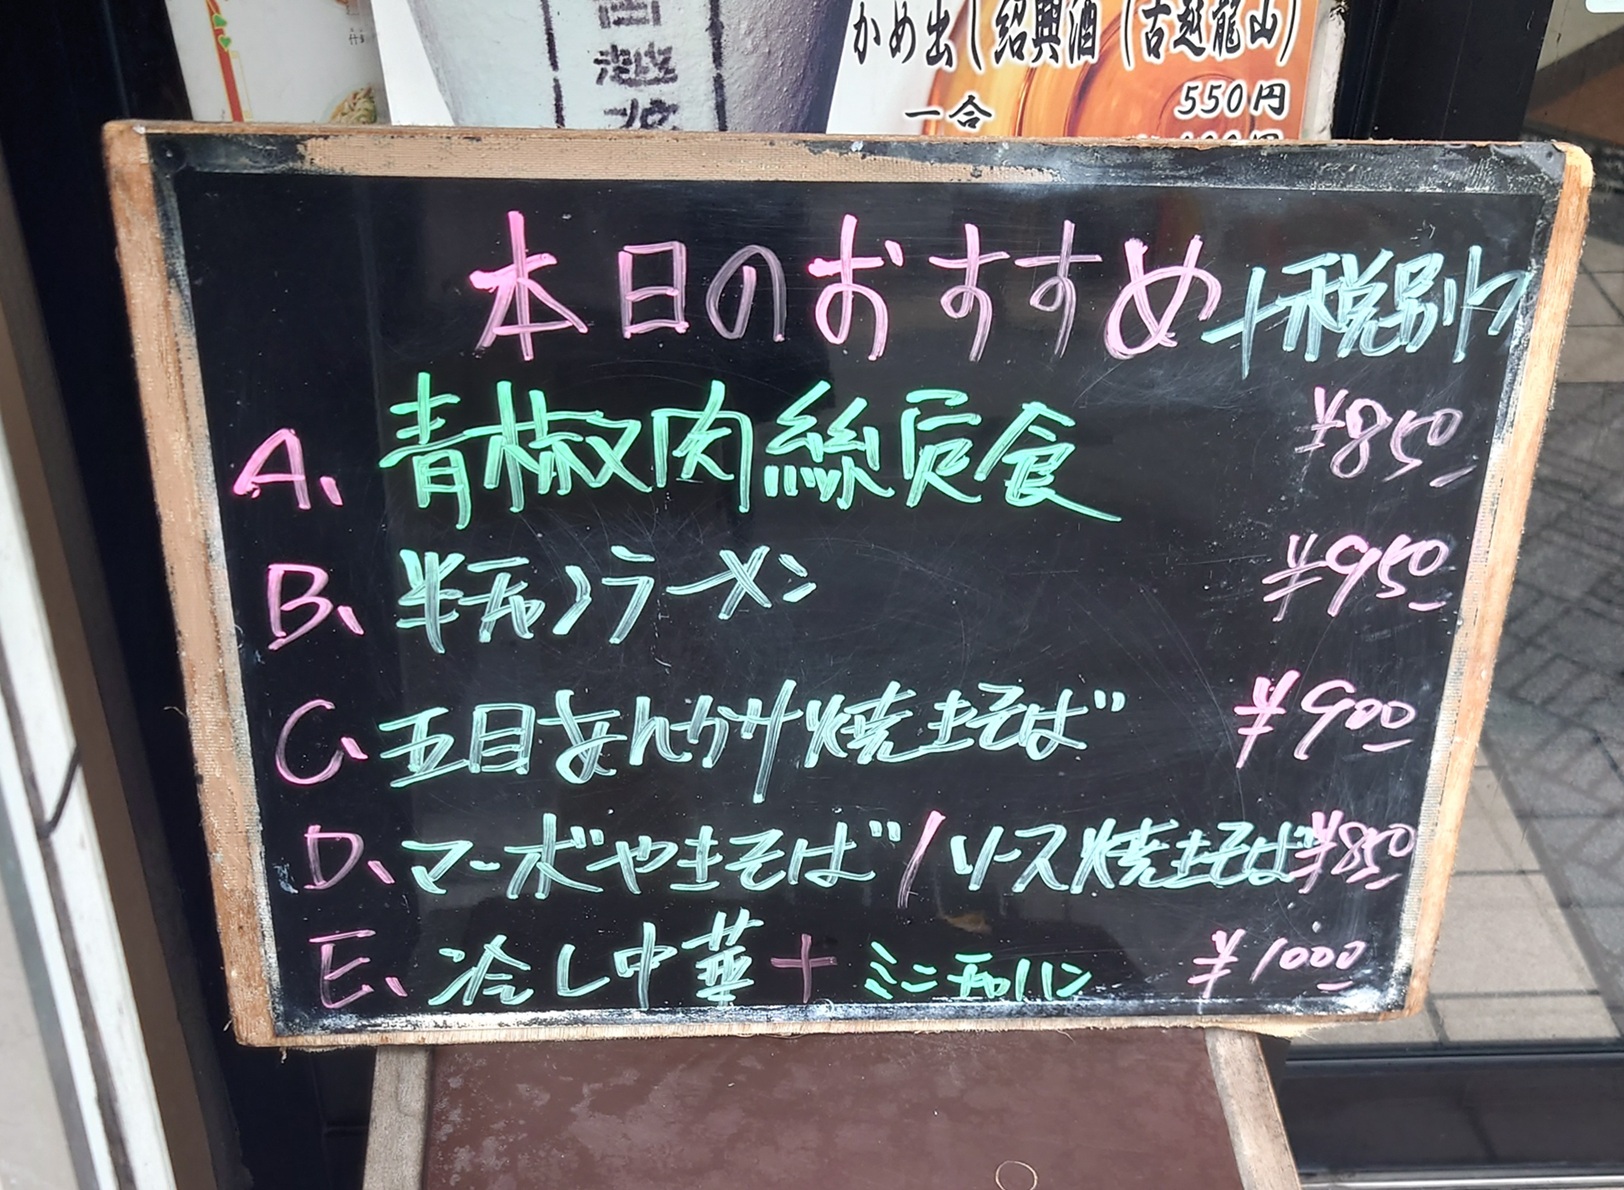 越
かめ出し紹興酒(古越龍山)
一合 550円
本日のおすすめ 税別
A、青椒肉絲定食 ¥850
B、半チャンラーメン ¥950
C、五目あんかけ焼きそば ¥900
D、マーボやきそば / ソース焼きそば ¥850
E、冷し中華 + ミニチャーハン ¥1000